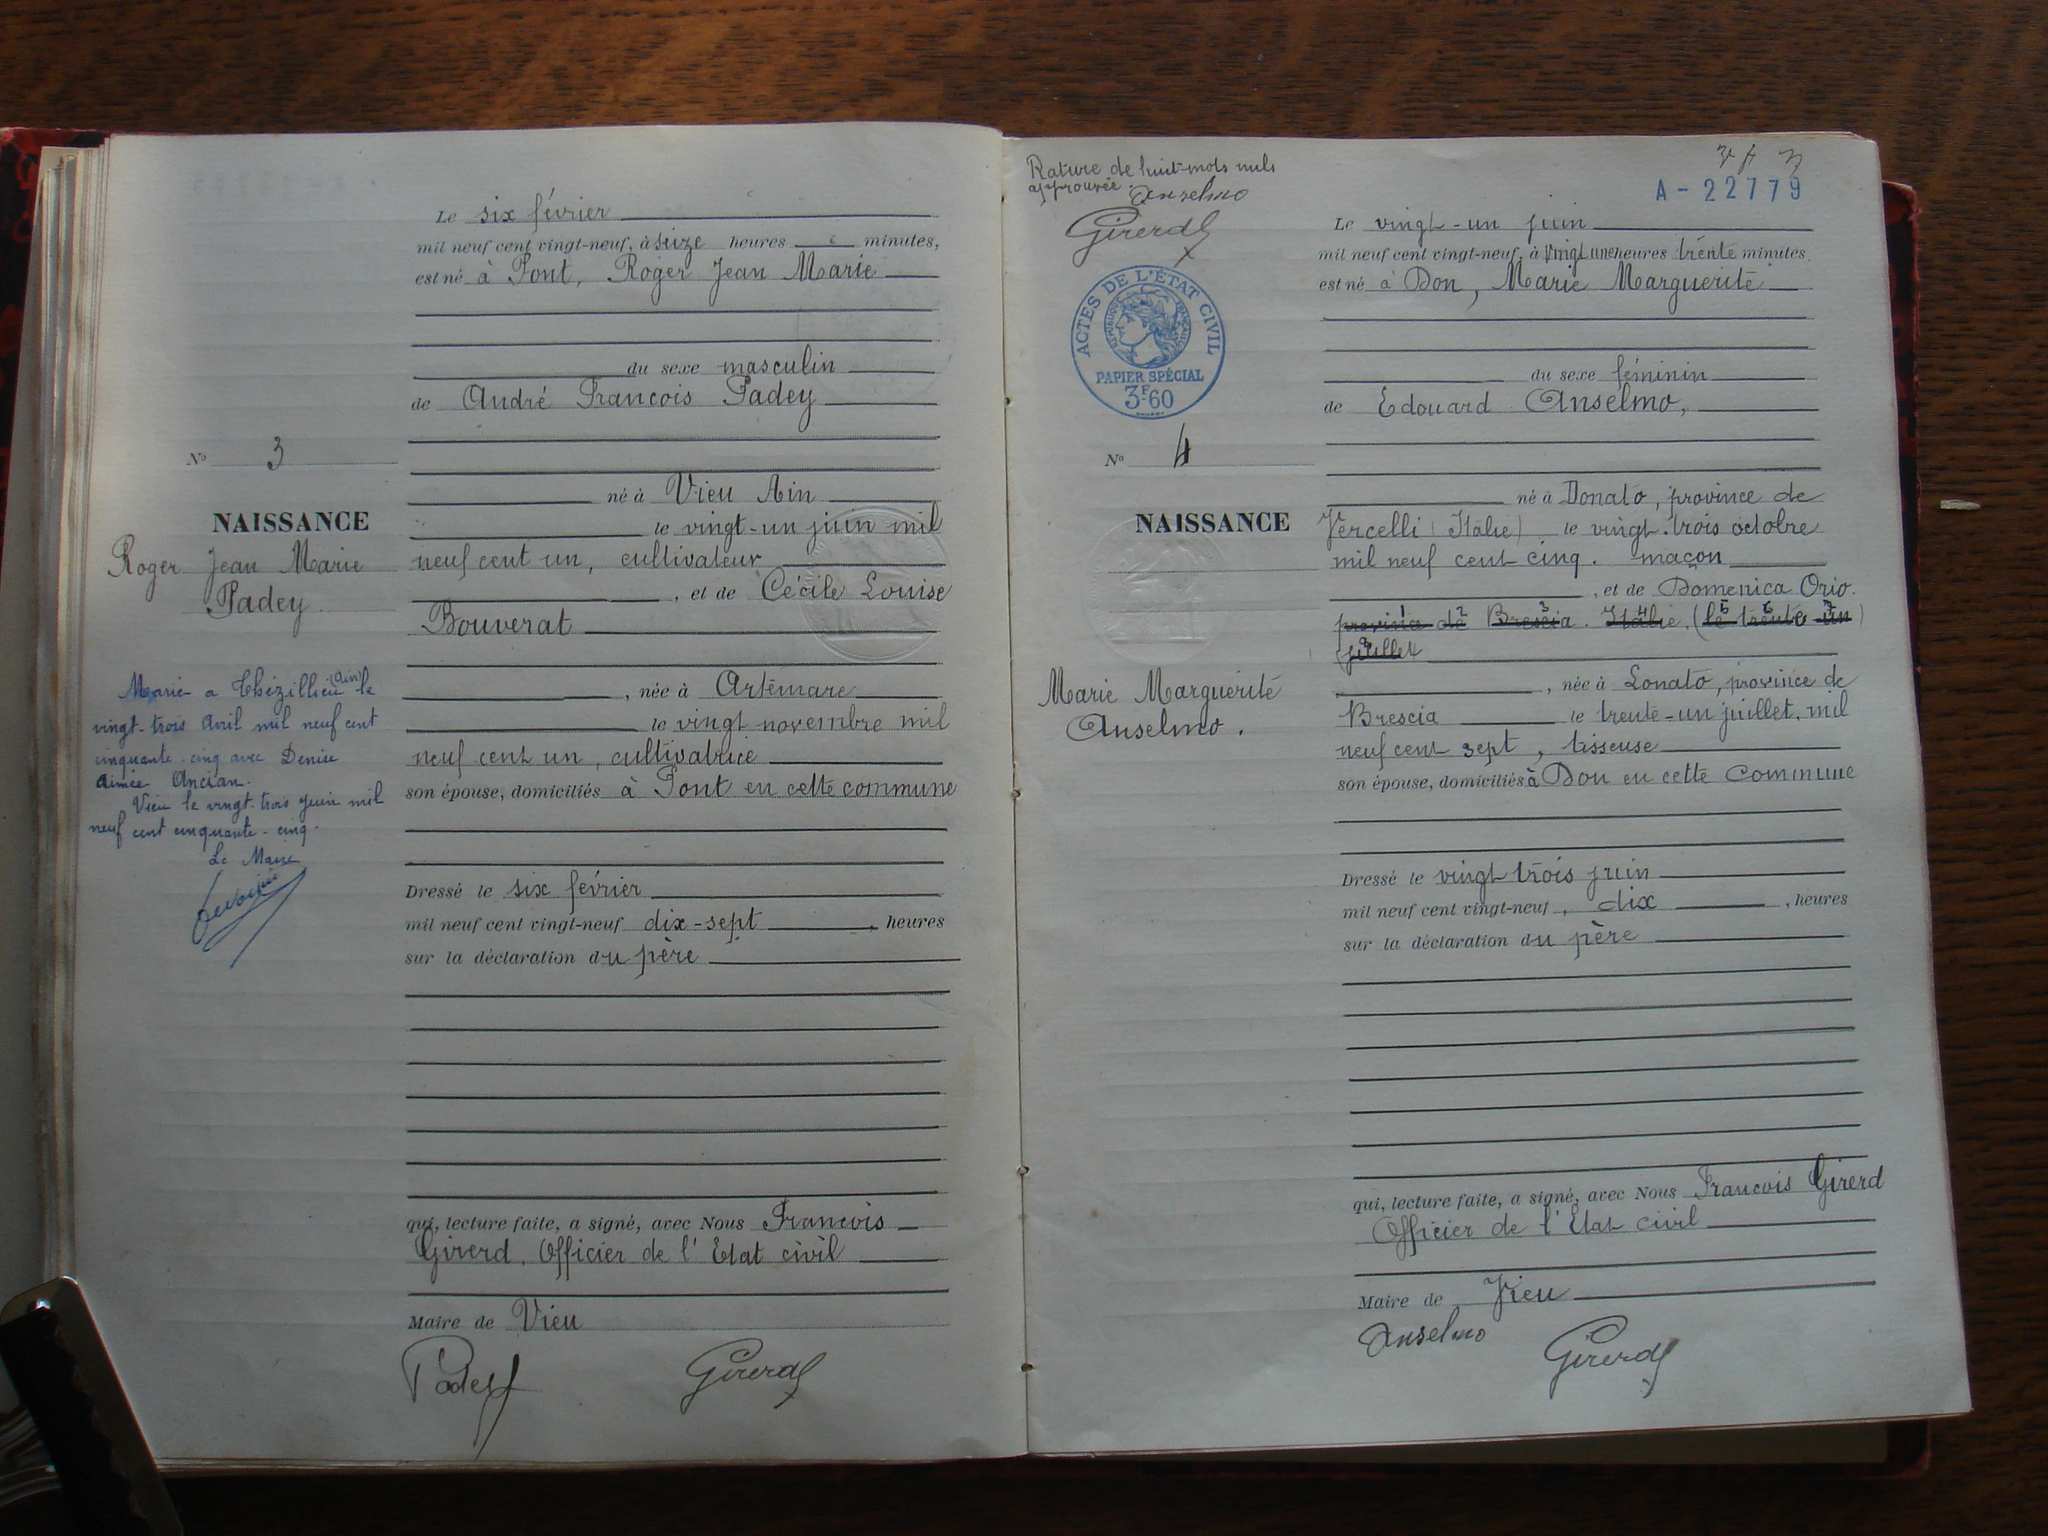 Le six février
mil neuf cent vingt-neuf, à seize heures minutes,
est né à Pont, Roger Jean Marie
du sexe masculin
de André François Padey
No 3
né à Vieu Ain
NAISSANCE
le vingt-un juin mil
Roger Jean Marie
neuf cent un, cultivateur
Padey
, et de Cécile Louise
Bouverat
Marié a Thézillieu (Ain) le
, née à Artemare
vingt-trois Avril mil neuf cent
le vingt novembre mil
cinquante-cinq avec Denise
neuf cent un, cultivatrice
Aimée Ancian.
son épouse, domiciliés à Pont en cette commune
Vieu le vingt-trois Juin mil
neuf cent cinquante-cinq.
Le Maire
Dressé le six février
mil neuf cent vingt-neuf dix-sept , heures
sur la déclaration du père
qui, lecture faite, a signé, avec Nous Francois
Girerd. Officier de l'Etat civil
Maire de Vieu
Padey Girerd
Rature de huit mots nuls
approuvée. Anselmo
Girerd
A-22779
Le vingt-un juin
mil neuf cent vingt-neuf, à vingt une heures trente minutes
est né à Don, Marie Marguerite
ACTES DE L'ÉTAT CIVIL
RÉPUBLIQUE FRANÇAISE
PAPIER SPÉCIAL
3F60
du sexe féminin
de Edouard Anselmo,
No 4
né à Donato, province de
NAISSANCE
Vercelli (Italie) le vingt-trois octobre
mil neuf cent cinq. maçon
, et de Domenica Orio.
province de Brescia. Italie. (le trente un
juillet
Marie Marguerite
Anselmo.
, née à Lonato, province de
Brescia le trente-un juillet, mil
neuf cent sept, tisseuse
son épouse, domiciliés à Don en cette commune
Dressé le vingt trois juin
mil neuf cent vingt-neuf, dix , heures
sur la déclaration du père
qui, lecture faite, a signé, avec Nous Francois Girerd
Officier de l'Etat civil
Maire de Vieu
Anselmo Girerd